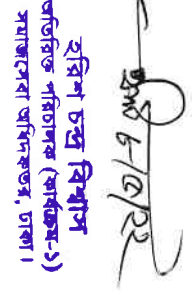 হরিশ চন্দ্র বিশ্বাস
অতিরিক্ত পরিচালক (কার্যক্রম-১)
সমাজসেবা অধিদফতর, ঢাকা।